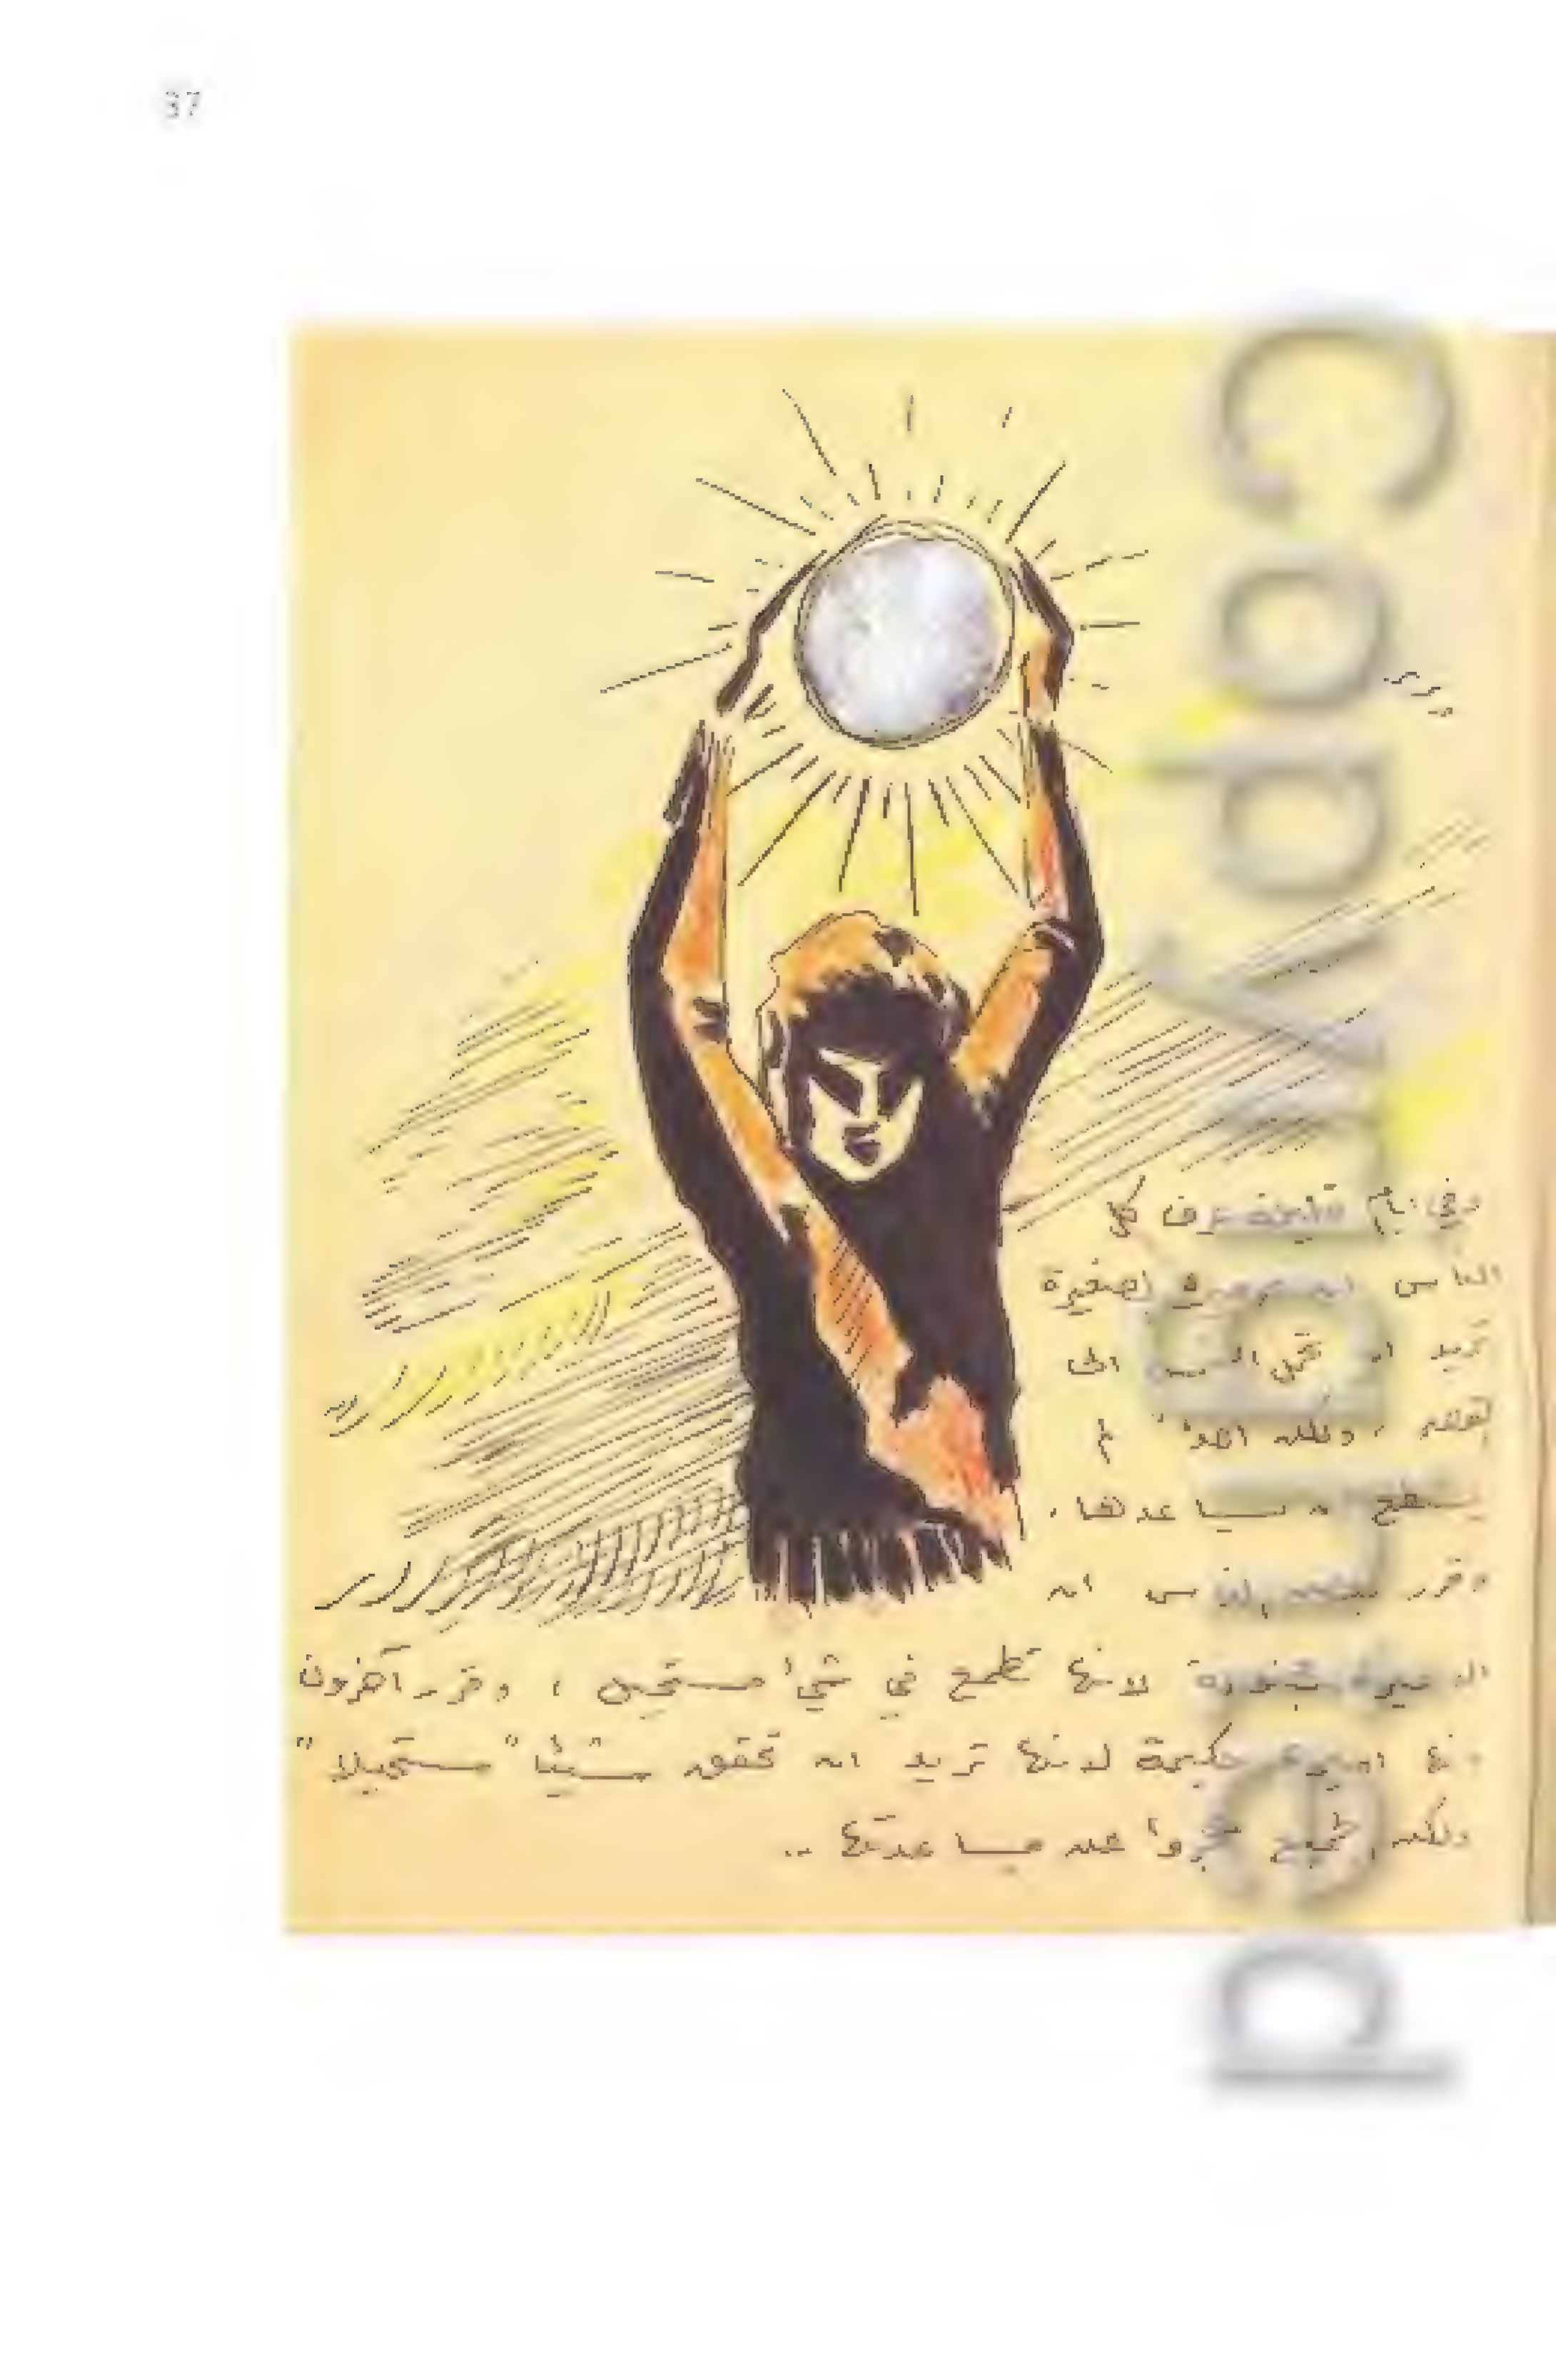 37
وفي أيام قليلة عرف كل
الناس ان الأميرة الصغيرة
تريد ان تحمل الشمس الى
القصر ، ولكن احداً لم
يستطع ان يساعدها .
وقرر بعض الناس ان
الأميرة مجنونة لانها تطمح في شيء مستحيل ، وقرر آخرون
انها اميرة حكيمة لانها تريد ان تحقق شيئاً مستحيلاً
ولكن الجميع عجزوا عن مساعدتها ..
Copyrighted